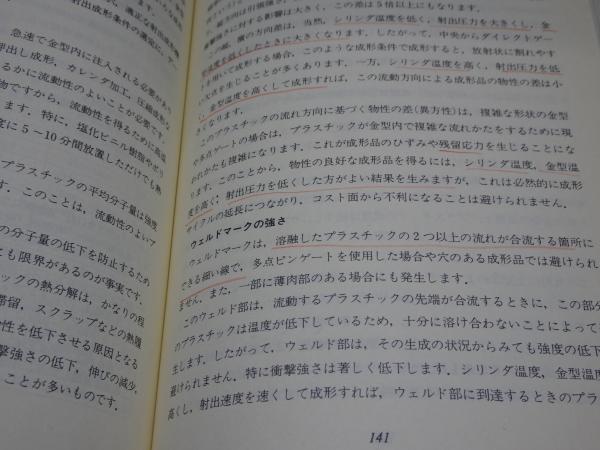 射出成形条件の選定に，デ
急速で金型内に注入される必要があり
押出し成形，カレンダ加工，圧縮成形な
るかに流動性のよいことが必要です．
物ですから，流動性を得るために高温
ます．特に，塩化ビニル樹脂やポリ
度に5～10分間放置しただけでも熱
プラスチックの平均分子量は強度
す．このことは，流動性のよいプ
の分子量の低下を防止するため
も限界があるのが事実です．
ックの熱分解は，かなりの程
滞留，スクラップなどの熱履
性を低下させる原因となる
撃強さの低下，伸びの減少，
ことが多いものです．
きへの影響は大きく，この差は5倍以上にもなります．
この縦，横の方向差は，当然，シリンダ温度を低く，射出圧力を大きくし，金
型温度を低くしたときに大きくなります．したがって，中央からダイレクトゲー
トを用いて成形する場合，このような成形条件で成形すると，放射状に割れやす
い欠点を生じることが多くあります．一方，シリンダ温度を高く，射出圧力を低
く，金型温度を高くして成形すれば，この流動方向による成形品の物性の差は小
さくなります．
このプラスチックの流れ方向に基づく物性の差(異方性)は，複雑な形状の金型
や多点ゲートの場合は，プラスチックが金型内で複雑な流れかたをするために現
われかたも複雑になります．これが成形品のひずみや残留応力を生じることにな
ります．このことから，物性の良好な成形品を得るには，シリンダ温度，金型温
度を高く，射出圧力を低くした方がよい結果を生みますが，これは必然的に成形
サイクルの延長につながり，コスト面から不利になることは避けられません．
ウェルドマークの強さ
ウェルドマークは，溶融したプラスチックの2つ以上の流れが合流する箇所に
できる細い線で，多点ピンゲートを使用した場合や穴のある成形品では避けられ
ません．また，一部に薄肉部のある場合にも発生します．
このウェルド部は，流動するプラスチックの先端が合流するときに，この部分
のプラスチックは温度が低下しているため，十分に溶け合わないことによって
生します．したがって，ウェルド部は，その生成の状況からみても強度の低下
避けられません．特に衝撃強さは著しく低下します．シリンダ温度，金型温度
高くし，射出速度を速くして成形すれば，ウェルド部に到達するときのプラ
141